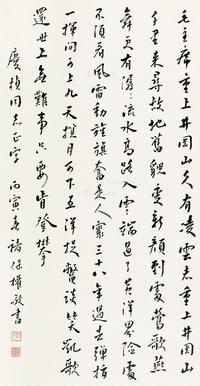 毛主席重上井岡山久有凌雲志重上井岡山
千里來尋故地舊貌變新顏到處鶯歌燕
舞更有潺潺流水高路入雲端過了黃洋界險處
不須看風雷動旌旗奮是人寰三十八年過去彈指
一揮間可上九天攬月可下五洋捉鱉談笑凱歌
還世上無難事只要肯登攀
慶楨同志正字 丙寅春 褚保權敬書